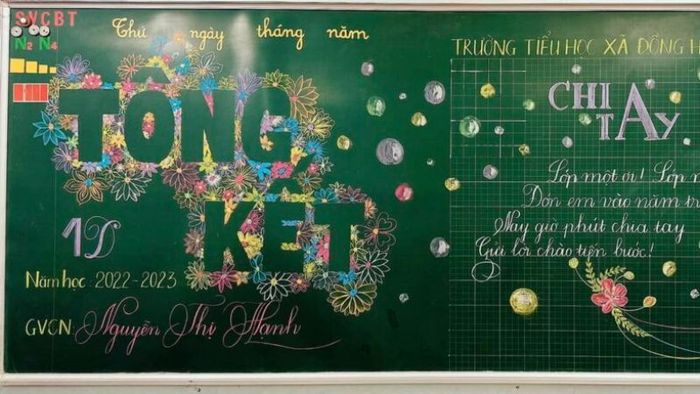 SVCBT
N2 N4
Thứ ngày tháng năm
TỔNG
KẾT
1D
Năm học: 2022-2023
GVCN: Nguyễn Thị Hạnh
TRƯỜNG TIỂU HỌC XÃ ĐÔNG
CHIA
TAY
Lớp một ơi! Lớp
Đón em vào năm
Nay giờ phút chia tay
Gửi lời chào tiến bước!